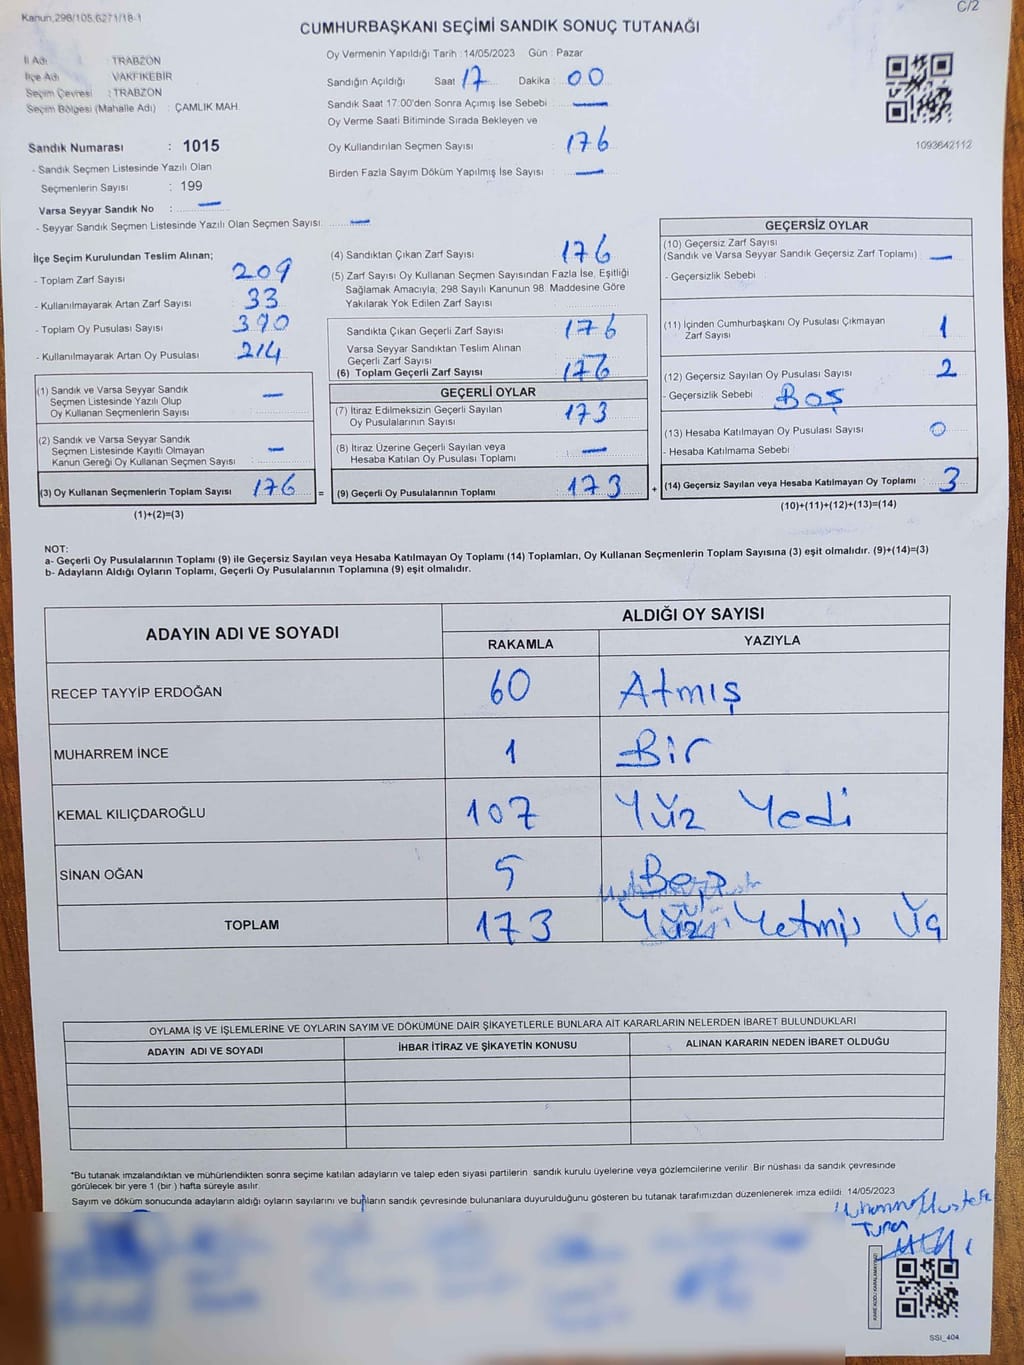 Kanun,298/105,6271/18-1
C/2
CUMHURBAŞKANI SEÇİMİ SANDIK SONUÇ TUTANAĞI
İl Adı : TRABZON
İlçe Adı : VAKFIKEBİR
Seçim Çevresi : TRABZON
Seçim Bölgesi (Mahalle Adı) : ÇAMLIK MAH.
Sandık Numarası : 1015
- Sandık Seçmen Listesinde Yazılı Olan
Seçmenlerin Sayısı : 199
Varsa Seyyar Sandık No : —
- Seyyar Sandık Seçmen Listesinde Yazılı Olan Seçmen Sayısı: —
Oy Vermenin Yapıldığı Tarih : 14/05/2023 Gün : Pazar
Sandığın Açıldığı Saat 17 Dakika : 00
Sandık Saat 17:00'den Sonra Açımış İse Sebebi : —
Oy Verme Saati Bitiminde Sırada Bekleyen ve
Oy Kullandırılan Seçmen Sayısı : 176
Birden Fazla Sayım Döküm Yapılmış İse Sayısı : —
1093642112
İlçe Seçim Kurulundan Teslim Alınan;
- Toplam Zarf Sayısı : 209
- Kullanılmayarak Artan Zarf Sayısı : 33
- Toplam Oy Pusulası Sayısı : 390
- Kullanılmayarak Artan Oy Pusulası : 214
(1) Sandık ve Varsa Seyyar Sandık
Seçmen Listesinde Yazılı Olup
Oy Kullanan Seçmenlerin Sayısı : —
(2) Sandık ve Varsa Seyyar Sandık
Seçmen Listesinde Kayıtlı Olmayan
Kanun Gereği Oy Kullanan Seçmen Sayısı : —
(3) Oy Kullanan Seçmenlerin Toplam Sayısı : 176 =
(1)+(2)=(3)
(4) Sandıktan Çıkan Zarf Sayısı : 176
(5) Zarf Sayısı Oy Kullanan Seçmen Sayısından Fazla İse, Eşitliği
Sağlamak Amacıyla, 298 Sayılı Kanunun 98. Maddesine Göre
Yakılarak Yok Edilen Zarf Sayısı :
Sandıkta Çıkan Geçerli Zarf Sayısı : 176
Varsa Seyyar Sandıktan Teslim Alınan
Geçerli Zarf Sayısı : —
(6) Toplam Geçerli Zarf Sayısı : 176
GEÇERLİ OYLAR
(7) İtiraz Edilmeksizin Geçerli Sayılan
Oy Pusulalarının Sayısı : 173
(8) İtiraz Üzerine Geçerli Sayılan veya
Hesaba Katılan Oy Pusulası Toplamı : —
(9) Geçerli Oy Pusulalarının Toplamı : 173 +
GEÇERSİZ OYLAR
(10) Geçersiz Zarf Sayısı
(Sandık ve Varsa Seyyar Sandık Geçersiz Zarf Toplamı) : —
- Geçersizlik Sebebi :
(11) İçinden Cumhurbaşkanı Oy Pusulası Çıkmayan
Zarf Sayısı : 1
(12) Geçersiz Sayılan Oy Pusulası Sayısı : 2
- Geçersizlik Sebebi : Boş
(13) Hesaba Katılmayan Oy Pusulası Sayısı : 0
- Hesaba Katılmama Sebebi :
(14) Geçersiz Sayılan veya Hesaba Katılmayan Oy Toplamı : 3
(10)+(11)+(12)+(13)=(14)
NOT:
a- Geçerli Oy Pusulalarının Toplamı (9) ile Geçersiz Sayılan veya Hesaba Katılmayan Oy Toplamı (14) Toplamları, Oy Kullanan Seçmenlerin Toplam Sayısına (3) eşit olmalıdır. (9)+(14)=(3)
b- Adayların Aldığı Oyların Toplamı, Geçerli Oy Pusulalarının Toplamına (9) eşit olmalıdır.
ADAYIN ADI VE SOYADI
ALDIĞI OY SAYISI
RAKAMLA YAZIYLA
RECEP TAYYİP ERDOĞAN 60 Atmış
MUHARREM İNCE 1 Bir
KEMAL KILIÇDAROĞLU 107 Yüz Yedi
SİNAN OĞAN 5 Beş
TOPLAM 173 Yüz Yetmiş Üç
OYLAMA İŞ VE İŞLEMLERİNE VE OYLARIN SAYIM VE DÖKÜMÜNE DAİR ŞİKAYETLERLE BUNLARA AİT KARARLARIN NELERDEN İBARET BULUNDUKLARI
ADAYIN ADI VE SOYADI İHBAR İTİRAZ VE ŞİKAYETİN KONUSU ALINAN KARARIN NEDEN İBARET OLDUĞU
*Bu tutanak imzalandıktan ve mühürlendikten sonra seçime katılan adayların ve talep eden siyasi partilerin sandık kurulu üyelerine veya gözlemcilerine verilir. Bir nüshası da sandık çevresinde
görülecek bir yere 1 (bir) hafta süreyle asılır.
Sayım ve döküm sonucunda adayların aldığı oyların sayılarını ve bunların sandık çevresinde bulunanlara duyurulduğunu gösteren bu tutanak tarafımızdan düzenlenerek imza edildi. 14/05/2023
SSİ_404